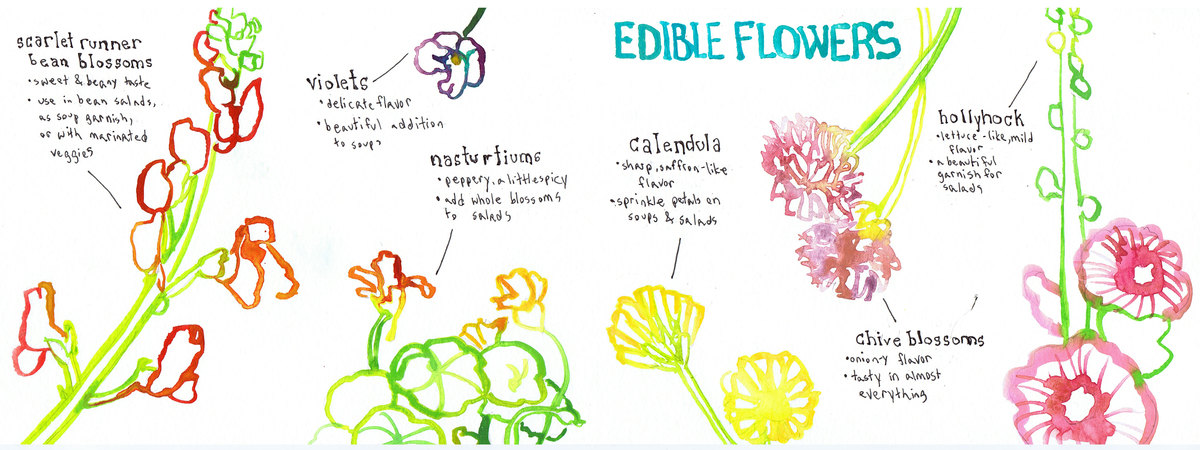 EDIBLE FLOWERS
scarlet runner
bean blossoms
• sweet & beany taste
• use in bean salads,
as soup garnish,
or with marinated
veggies
violets
• delicate flavor
• beautiful addition
to soups
nasturtiums
• peppery, a little spicy
• add whole blossoms
to salads
calendula
• sharp, saffron-like
flavor
• sprinkle petals on
soups & salads
hollyhock
• lettuce-like, mild
flavor
• a beautiful
garnish for
salads
chive blossoms
• oniony flavor
• tasty in almost
everything